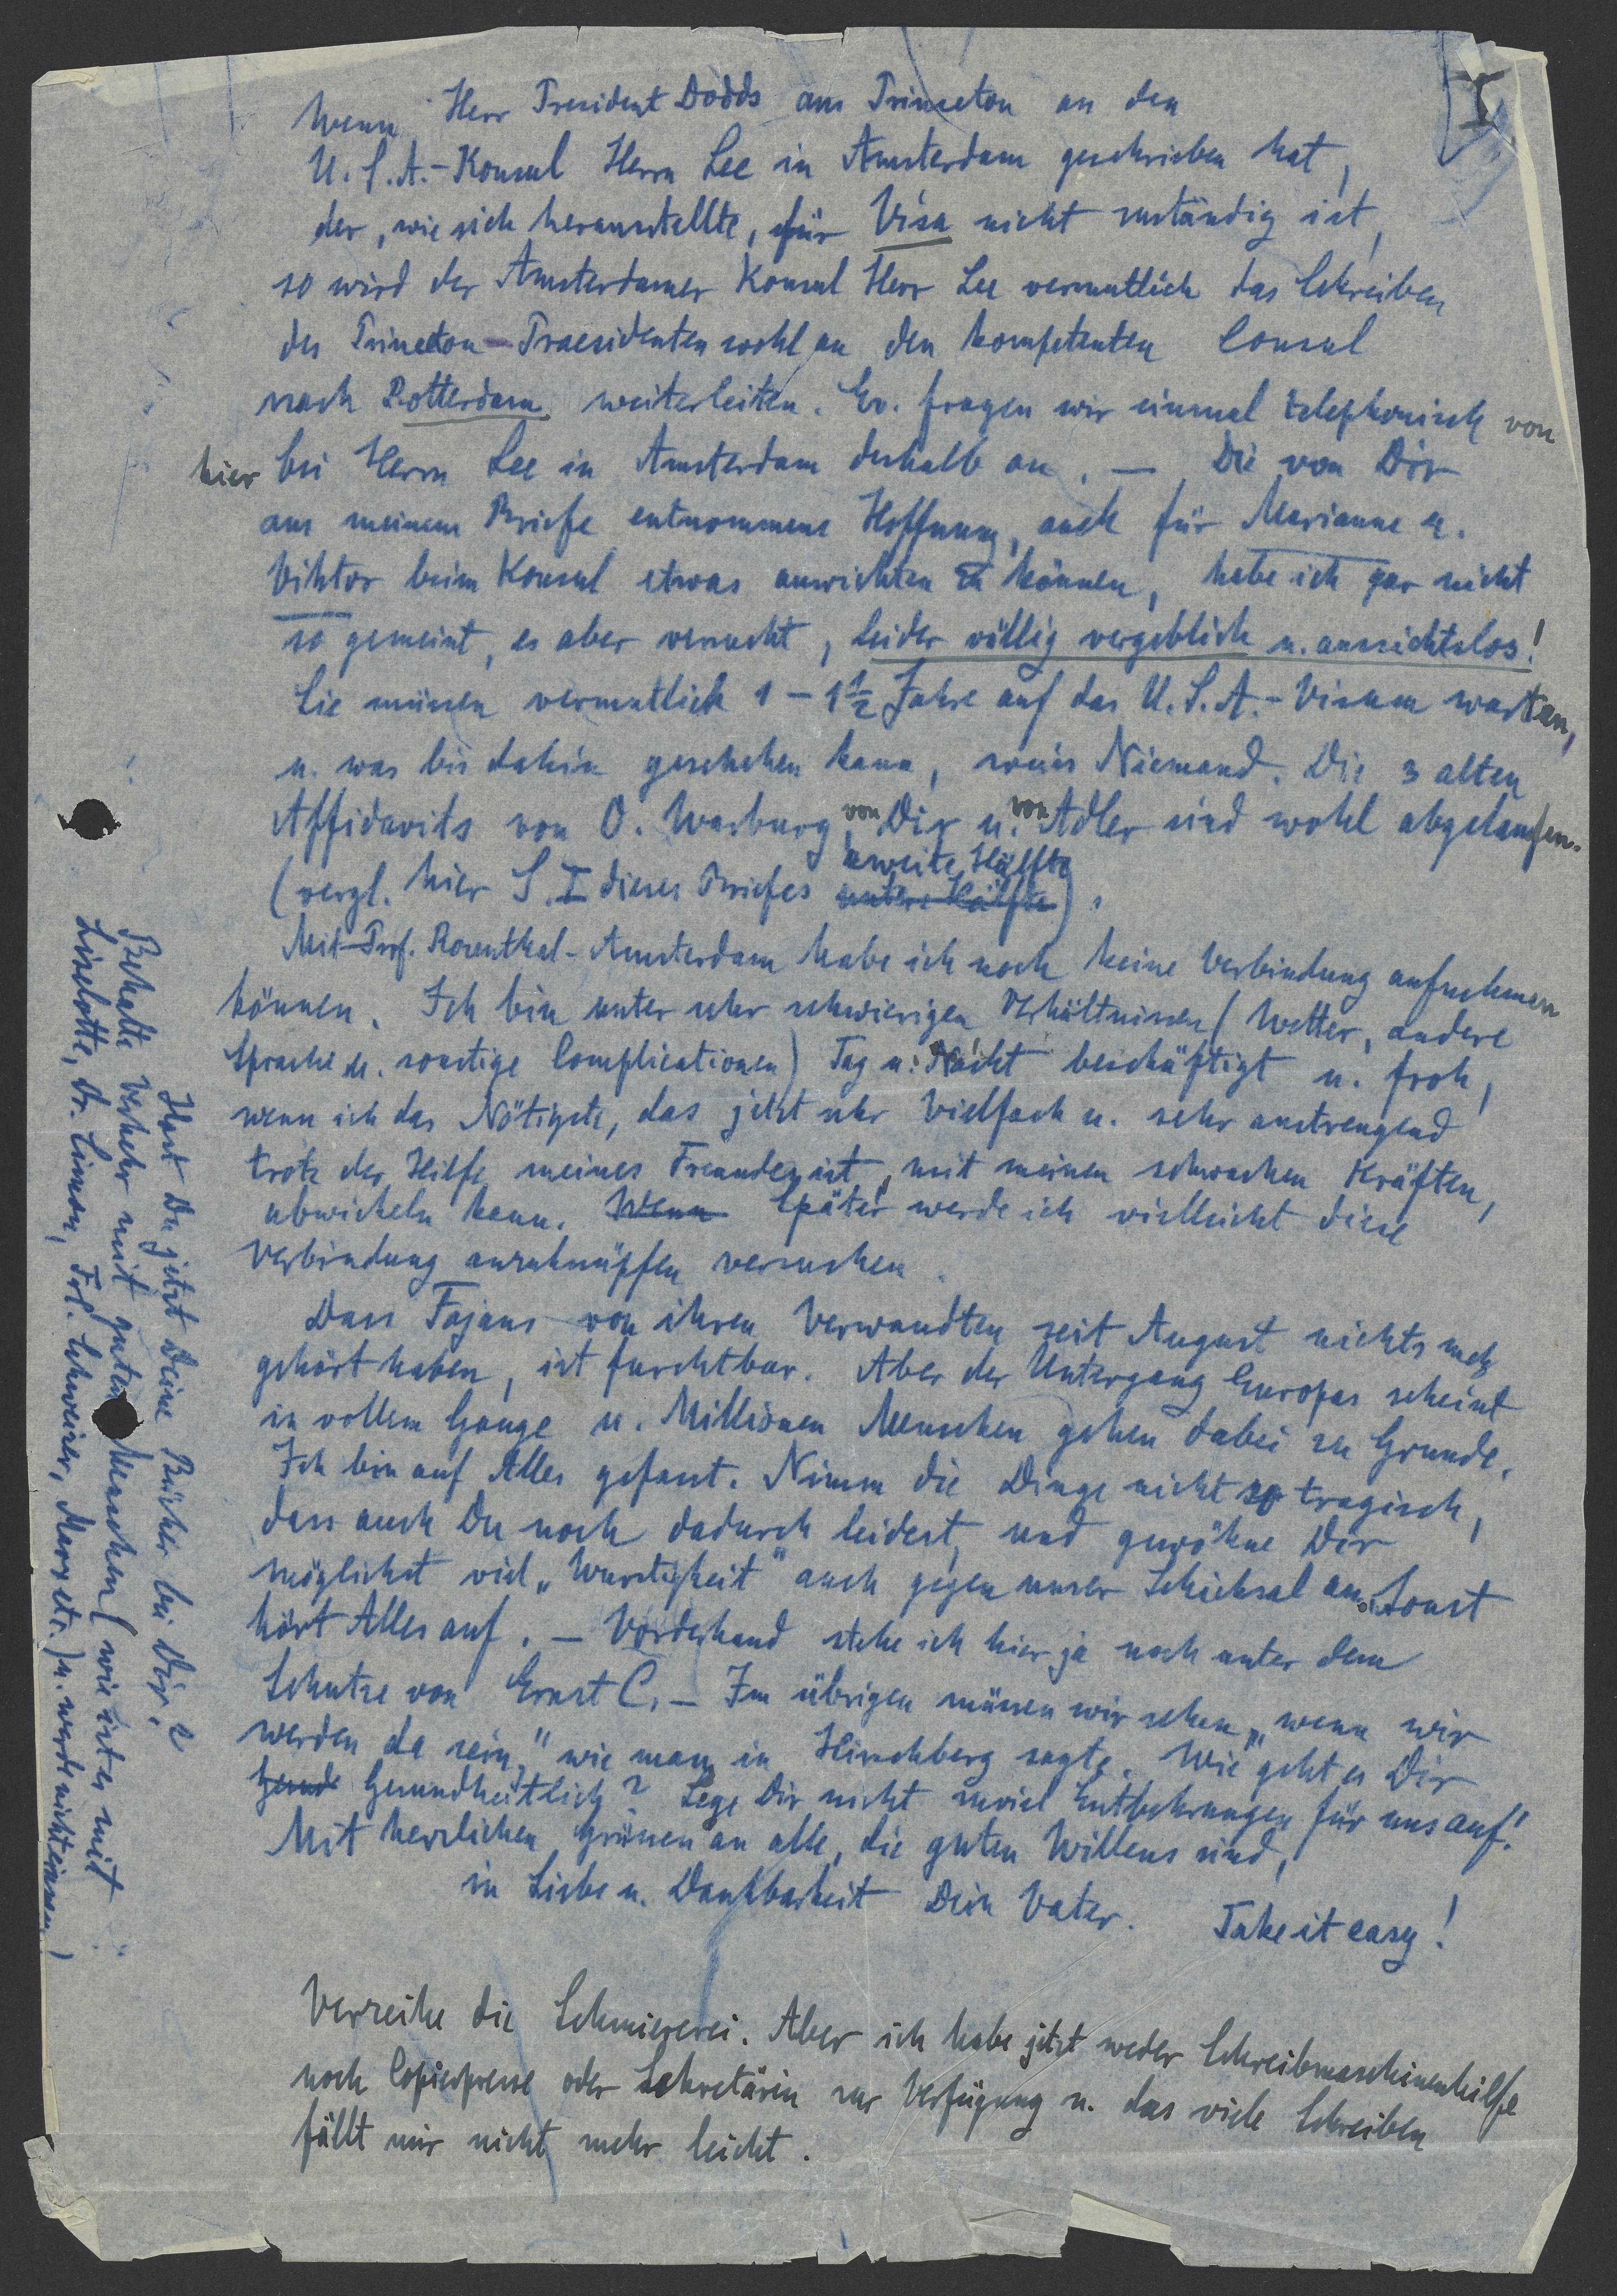 I
Wenn Herr President Dodds aus Princeton an den
U.S.A.-Konsul Herrn Lee in Amsterdam geschrieben hat,
der, wie sich herausstellte, für Visa nicht zuständig ist,
so wird der Amsterdamer Konsul Herr Lee vermutlich das Schreiben
des Princeton-Praesidenten wohl an den kompetenten Consul
nach Rotterdam weiterleiten. Ev. fragen wir einmal telephonisch von
hier bei Herrn Lee in Amsterdam deshalb an. — Die von Dir
aus meinem Briefe entnommene Hoffnung, auch für Marianne u.
Viktor beim Konsul etwas ausrichten zu können, habe ich gar nicht
so gemeint, es aber versucht, leider völlig vergeblich u. aussichtslos!
Sie müssen vermutlich 1 – 1½ Jahre auf das U.S.A.-Visum warten,
u. was bis dahin geschehen kann, weiss Niemand. Die 3 alten
Affidavits von O. Warburg, von Dir u. von Adler sind wohl abgelaufen.
(vergl. hier S. I dieses Briefes untere Hälfte zweite Hälfte).
Mit Prof. Rosenthal-Amsterdam habe ich noch keine Verbindung aufnehmen
können. Ich bin unter sehr schwierigen Verhältnissen (Wetter, andere
Sprache u. sonstige Complicationen) Tag u. Nacht beschäftigt u. froh,
wenn ich das Nötigste, das jetzt sehr Vielfach u. sehr anstrengend
trotz der Hilfe meines Freundes ist, mit meinen schwachen Kräften,
abwickeln kann. Wenn Später werde ich vielleicht diese
Verbindung anzuknüpfen versuchen.
Dass Fajans von ihren Verwandten seit August nichts mehr
gehört haben, ist furchtbar. Aber der Untergang Europas scheint
in vollem Gange u. Millionen Menschen gehen dabei zu Grunde.
Ich bin auf Alles gefasst. Nimm die Dinge nicht so tragisch,
dass auch Du noch dadurch leidest, und gewöhne Dir
möglichst viel „Wurstigkeit" auch gegen unser Schicksal an. Sonst
hört Alles auf. — Vorderhand stehe ich hier ja noch unter dem
Schutze von Ernst C. — Im übrigen müssen wir sehen, „wenn wir
werden da sein," wie man in Hirschberg sagte. Wie geht es Dir
Gesund Gesundheitlich? Lege Dir nicht zuviel Entbehrungen für uns auf!
Mit herzlichen Grüssen an alle, die guten Willens sind,
in Liebe u. Dankbarkeit Dein Vater. Take it easy!
Verzeihe die Schmiererei. Aber ich habe jetzt weder Schreibmaschinenhilfe
noch Copierpresse oder Sekretärin zur Verfügung u. das viele Schreiben
fällt mir nicht mehr leicht.
Hast Du jetzt Deine Bücher bei Dir?
Behalte Verkehr mit guten Menschen (wie ist es mit
Liselotte, Dr. Simon, Frl. Schweizer, Marx etc.) u. werde nicht einsam!